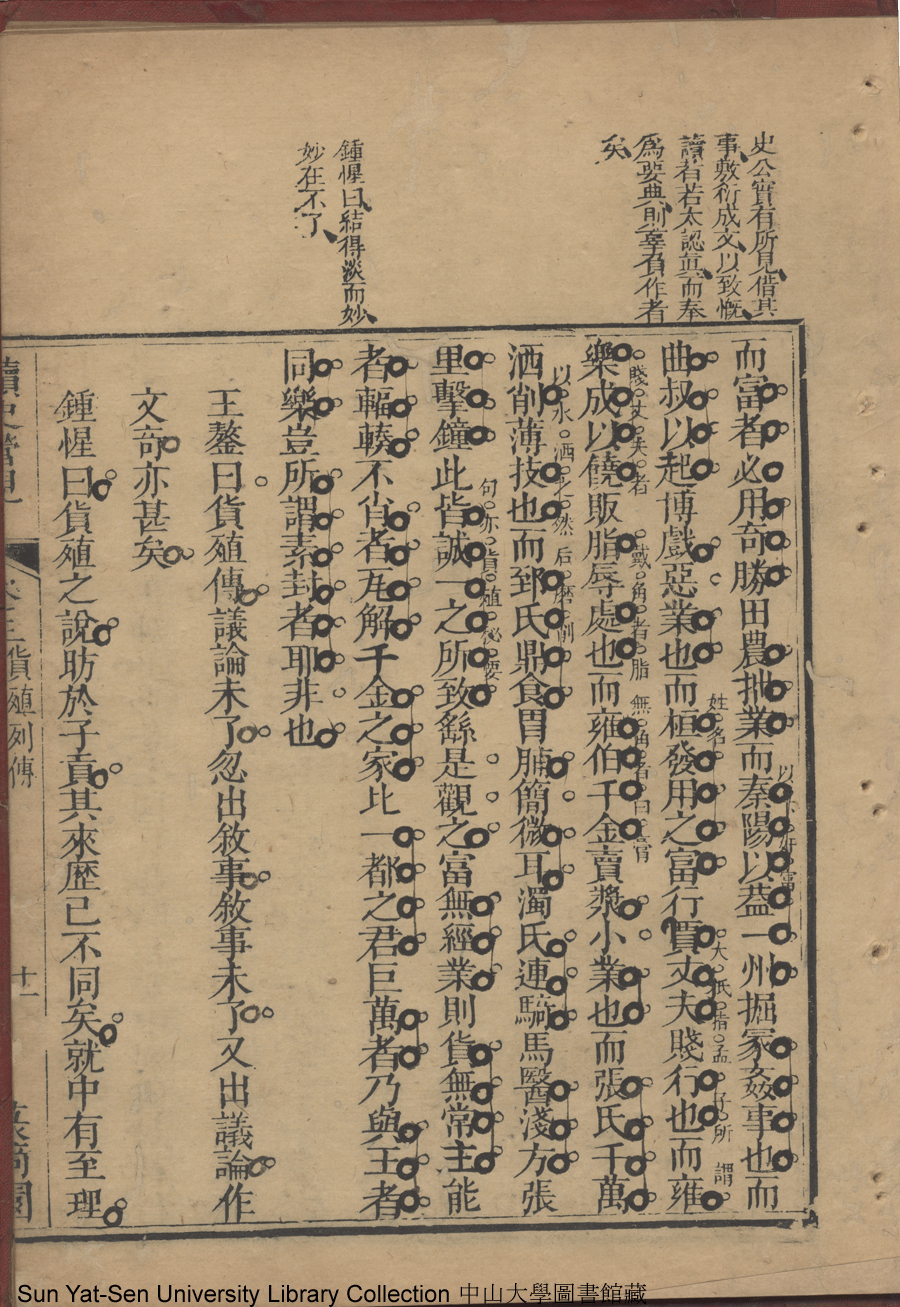 史公實有所見借其
事敷衍成文以致慨
讀者若太認真而奉
爲要典則辜負作者
矣
鍾惺曰結得淡而妙
妙在不了
而富者必用奇勝田農拙業而秦陽以蓋一州掘冢姦事也而
曲叔以起博戲惡業也而桓發用之富行賈丈夫賤行也而雍
樂成以饒販脂辱處也而雍伯千金賣漿小業也而張氏千萬
洒削薄技也而郅氏鼎食胃脯簡微耳濁氏連騎馬醫淺方張
里擊鐘此皆誠一之所致繇是觀之富無經業則貨無常主能
者輻輳不肖者瓦解千金之家比一都之君巨萬者乃與王者
同樂豈所謂素封者耶非也
以下所富
姓名
大氐指孟子所謂
賤丈夫者
戴角者脂無角者曰膏
以水洒之然后磨削
句亦貨殖秘要
王鏊曰貨殖傳議論未了忽出敘事敘事未了又出議論作
文奇亦甚矣
鍾惺曰貨殖之說昉於子貢其來歷已不同矣就中有至理
讀史
卷三 貨殖列傳
十一
Sun Yat-Sen University Library Collection 中山大學圖書館藏